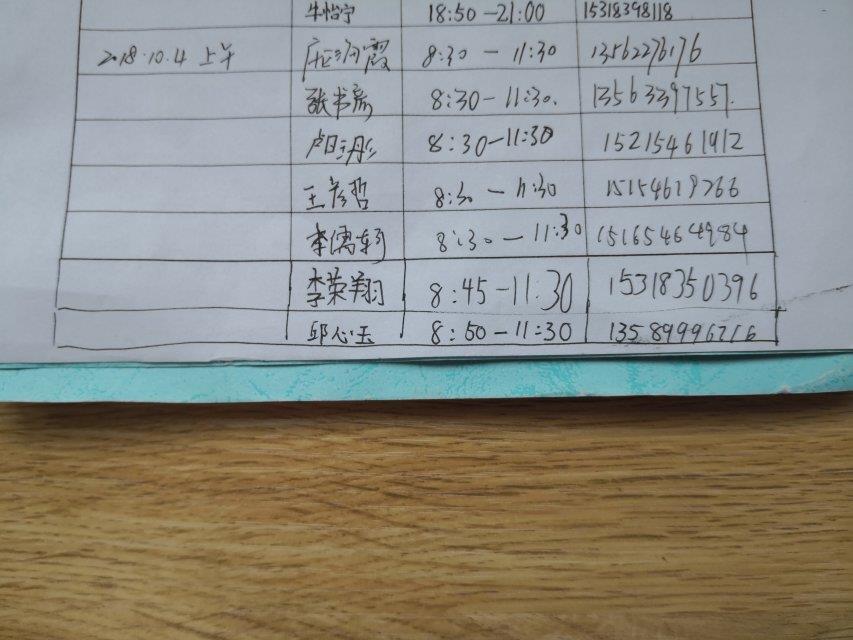 牛怡宁 18:50-21:00 15318398118
2018.10.4 上午 霞 8:30-11:30 13562276176
张书彦 8:30-11:30. 13563397557.
卢 8:30-11:30 15215461912
王彦哲 8:30-11:30 15154619266
李儒轩 8:30-11:30 15165464984
李荣翔 8:45-11:30 15318350396
邱心玉 8:50-11:30 13589996216